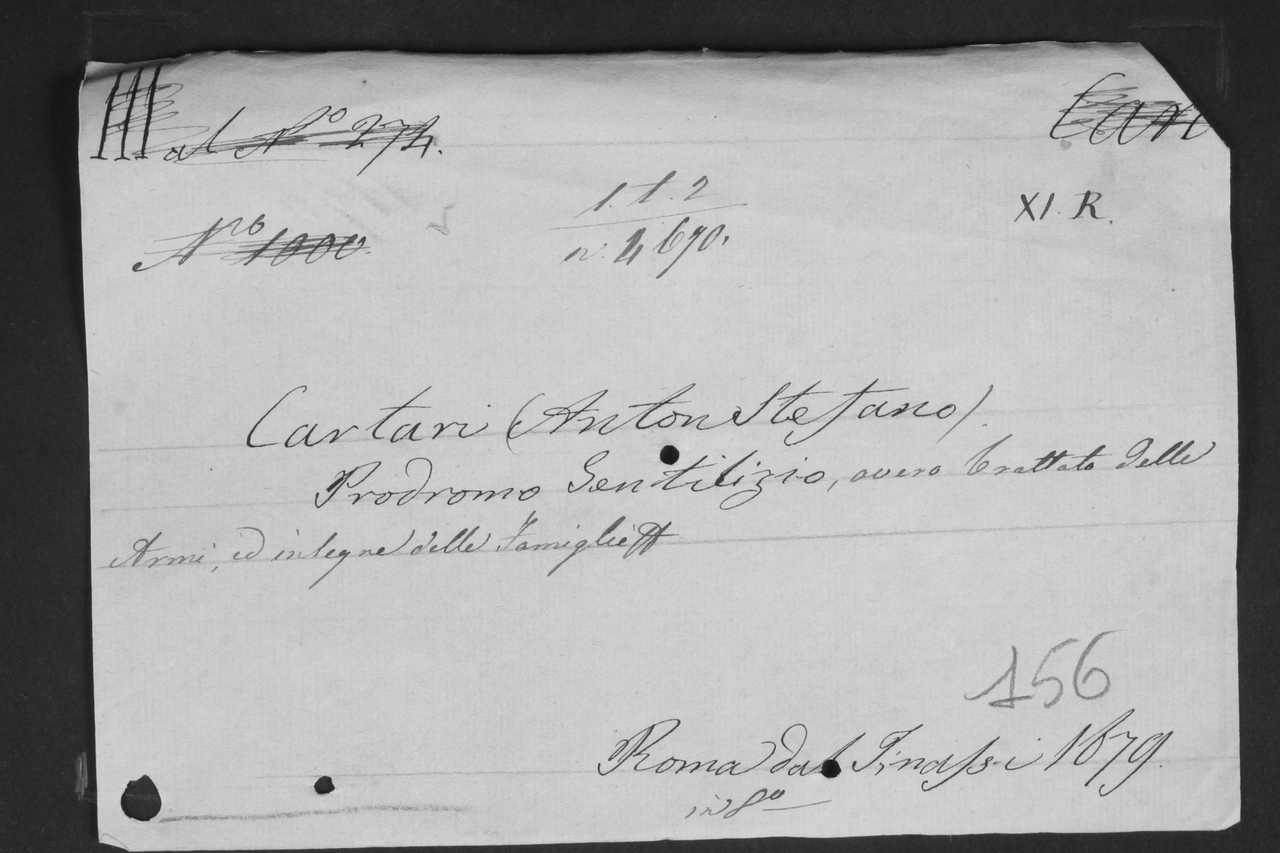 III al N.º 274. Cart
1 1. 2 XI. R.
Nro 1000.
n. 4690.
Cartari (Anton Stefano).
Prodromo Gentilizio, overo trattato delle
Armi, ed insegne delle Famiglie
156
Roma dal Tinassi 1679.
in 8º